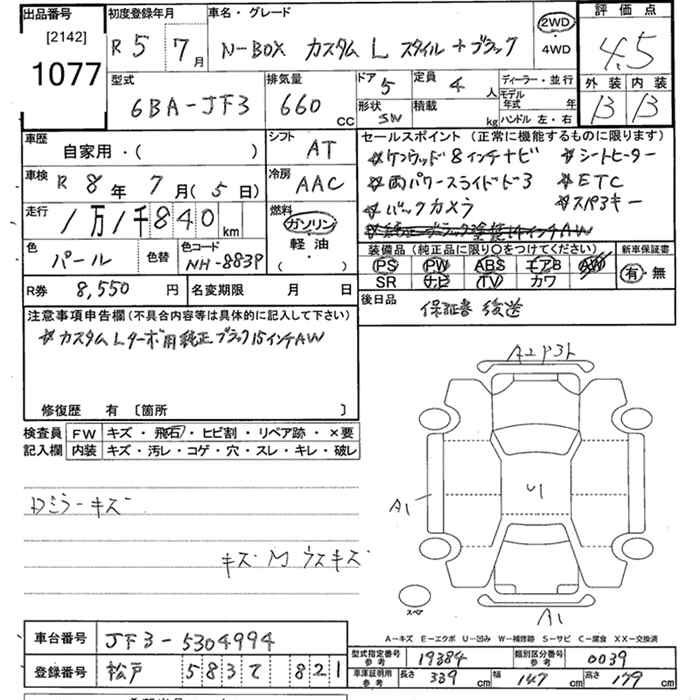 出品番号
[2142]
1077
初度登録年月
R 5 7月
車名・グレード
N-BOX カスタム L スタイル+ブラック
2WD
4WD
評価点
4.5
外装 内装
B B
型式
6BA-JF3
排気量
660 CC
ドア 5
定員 4 人
形状 SW
積載 kg
ディーラー・並行
モデル年式 年
ハンドル 左・右
車歴
自家用・( )
シフト
AT
車検 R 8年 7月(5日)
冷房
AAC
走行 1万1千840km
燃料
ガソリン
軽油
( )
色
パール
色替
色コード
NH-883P
R券 8,550円
名変期限 月 日
セールスポイント(正常に機能するものに限ります)
☆ケンウッド8インチナビ ☆シートヒーター
☆両パワースライドドア ☆ETC
☆バックカメラ ☆スペアキー
☆純正ブラック塗装14インチAW
装備品(純正品に限り〇をつけてください)
新車保証書
PS PW ABS エアB AW
SR ナビ TV カワ
有・無
後日品
保証書 後送
注意事項申告欄(不具合内容等は具体的に記入して下さい)
☆カスタムLターボ用純正ブラック15インチAW
修復歴 有 〔箇所 〕
検査員記入欄
FW キズ・飛石・ヒビ割・リペア跡・×要
内装 キズ・汚レ・コゲ・穴・スレ・キレ・破レ
Dミラーキズ
キズ M ウスキズ
A2P3ト
A1
U1
スペア
A1
A－キズ E－エクボ U－凹み W－補修跡 S－サビ C－腐食 XX－交換済
車台番号 JF3-5304994
登録番号 松戸 583て 821
型式指定番号 参考 19384
類別区分番号 参考 0039
車庫証明用 参考 長さ 339cm 幅 147cm 高さ 179cm